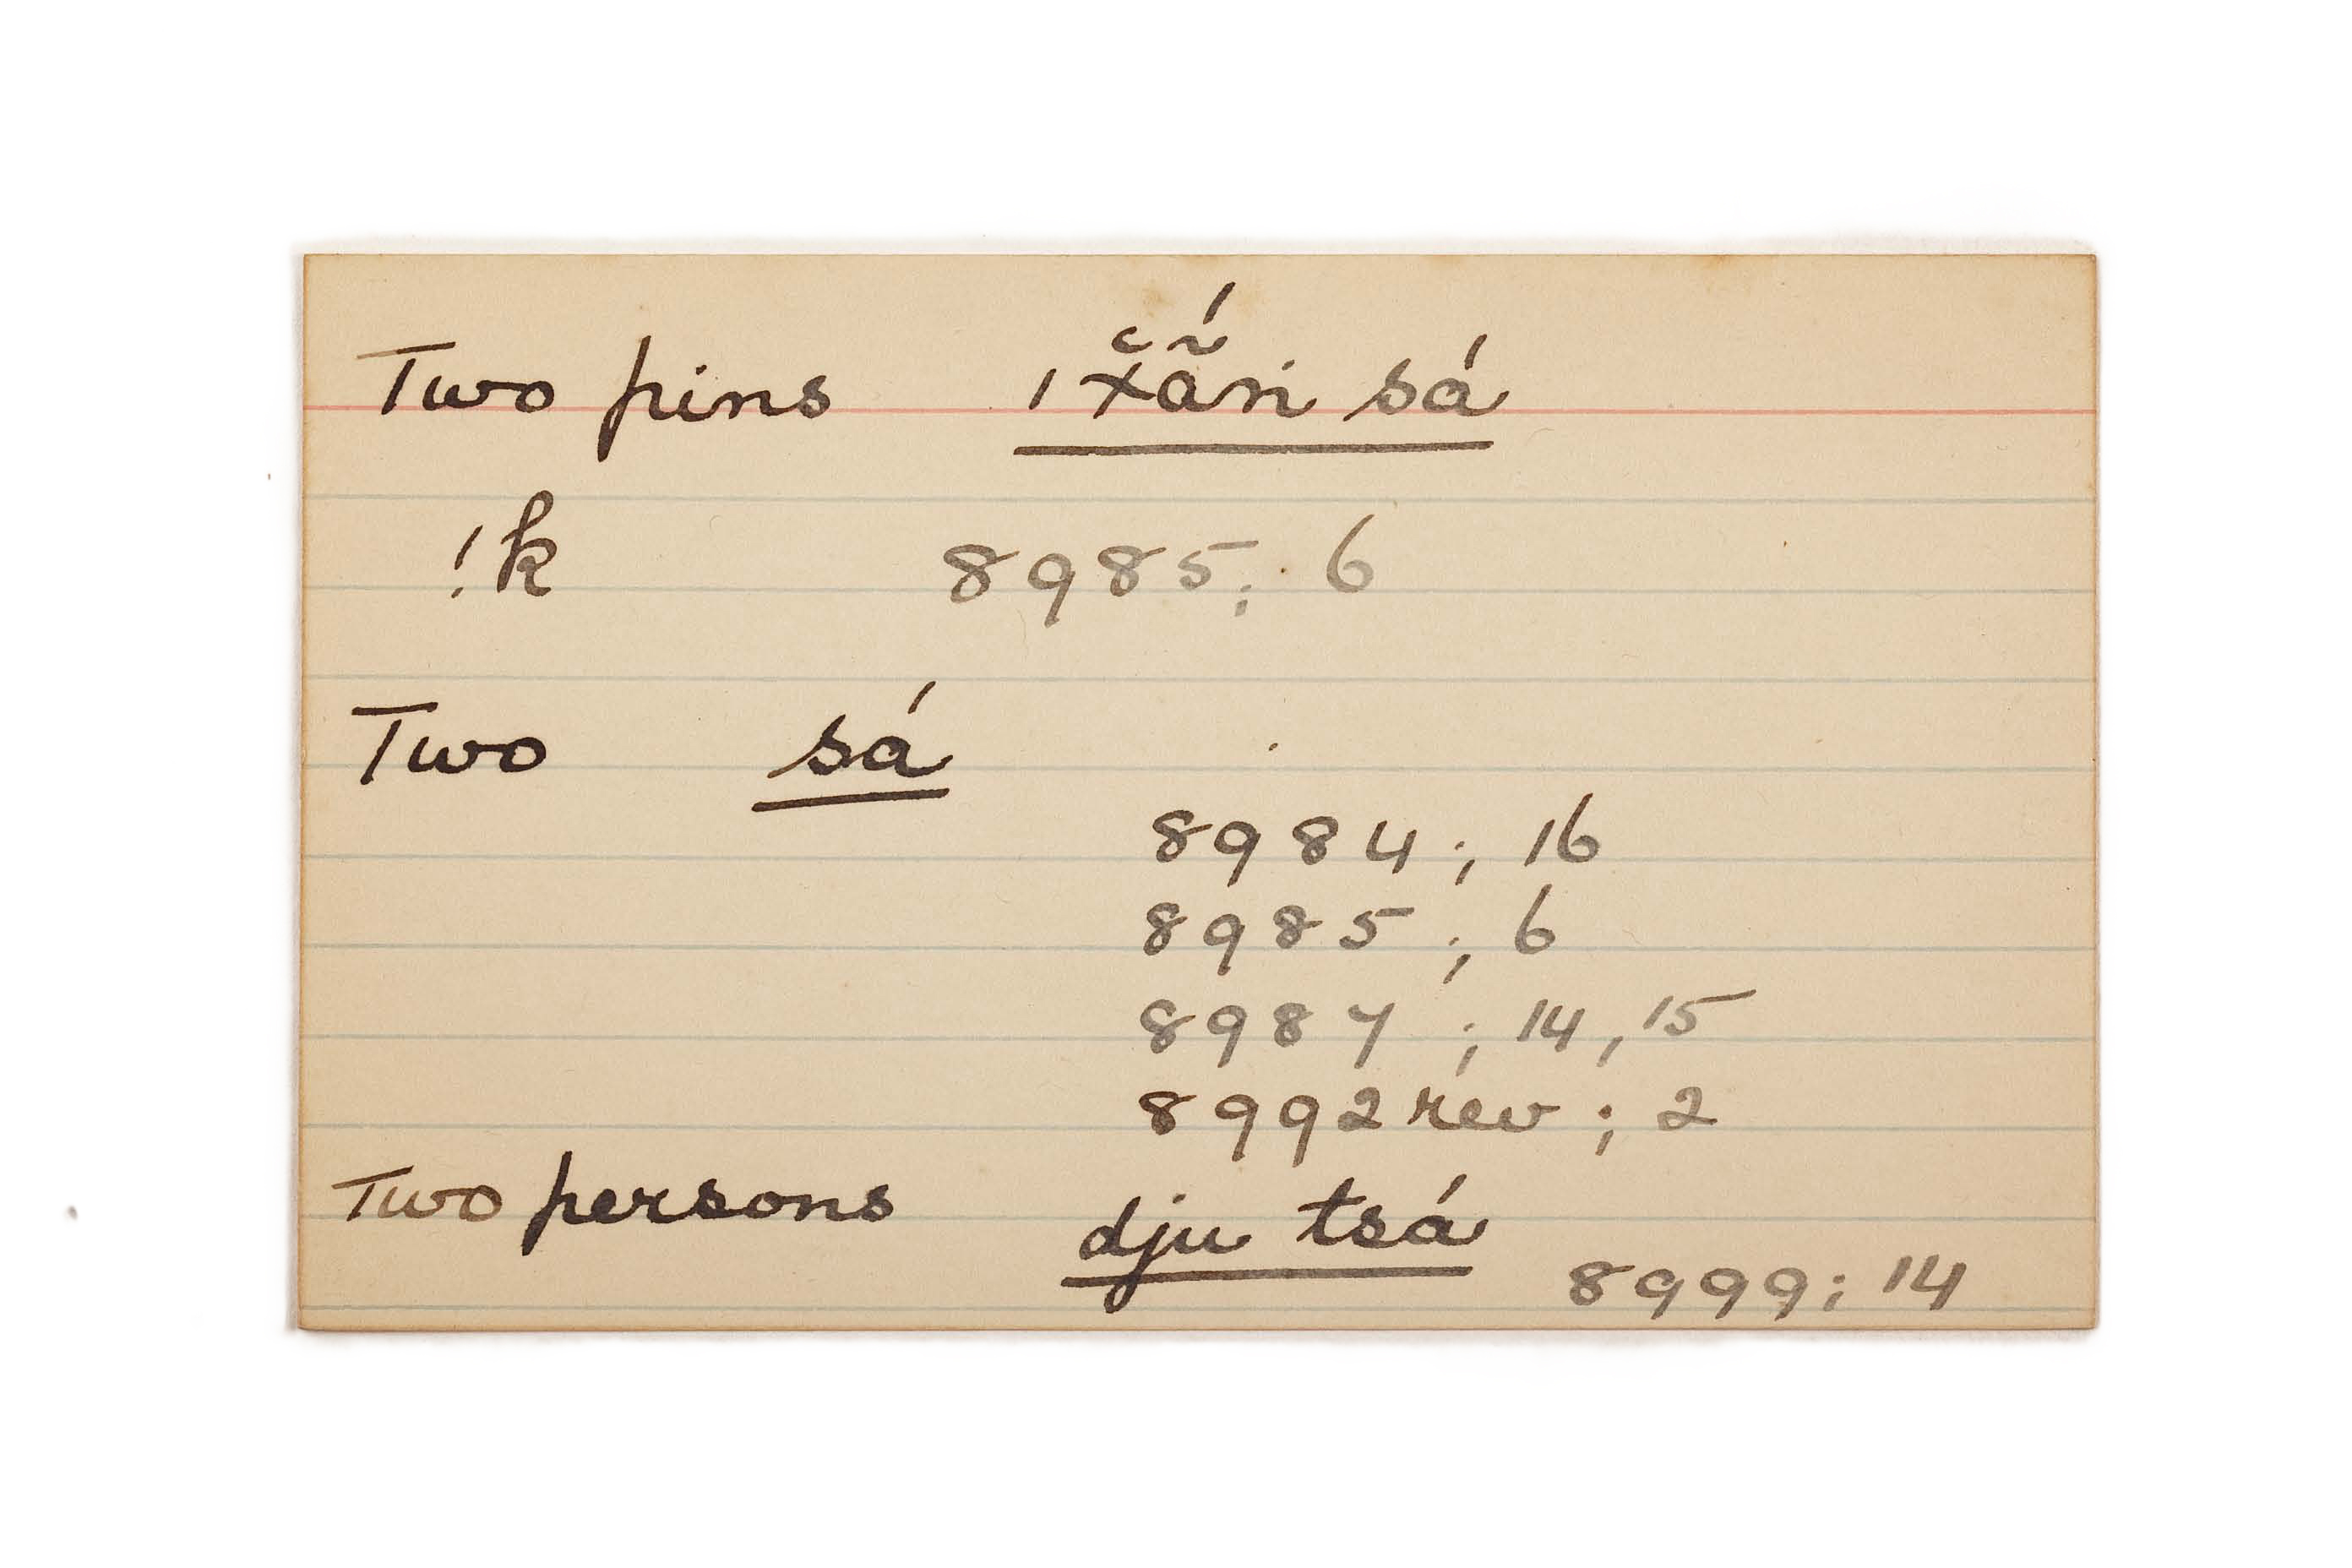 Two pins ı x̆ã́n sá
!k 8985; 6
Two sá
8984; 16
8985; 6
8987; 14, 15
8992 rev; 2
Two persons dju tsá
8999; 14